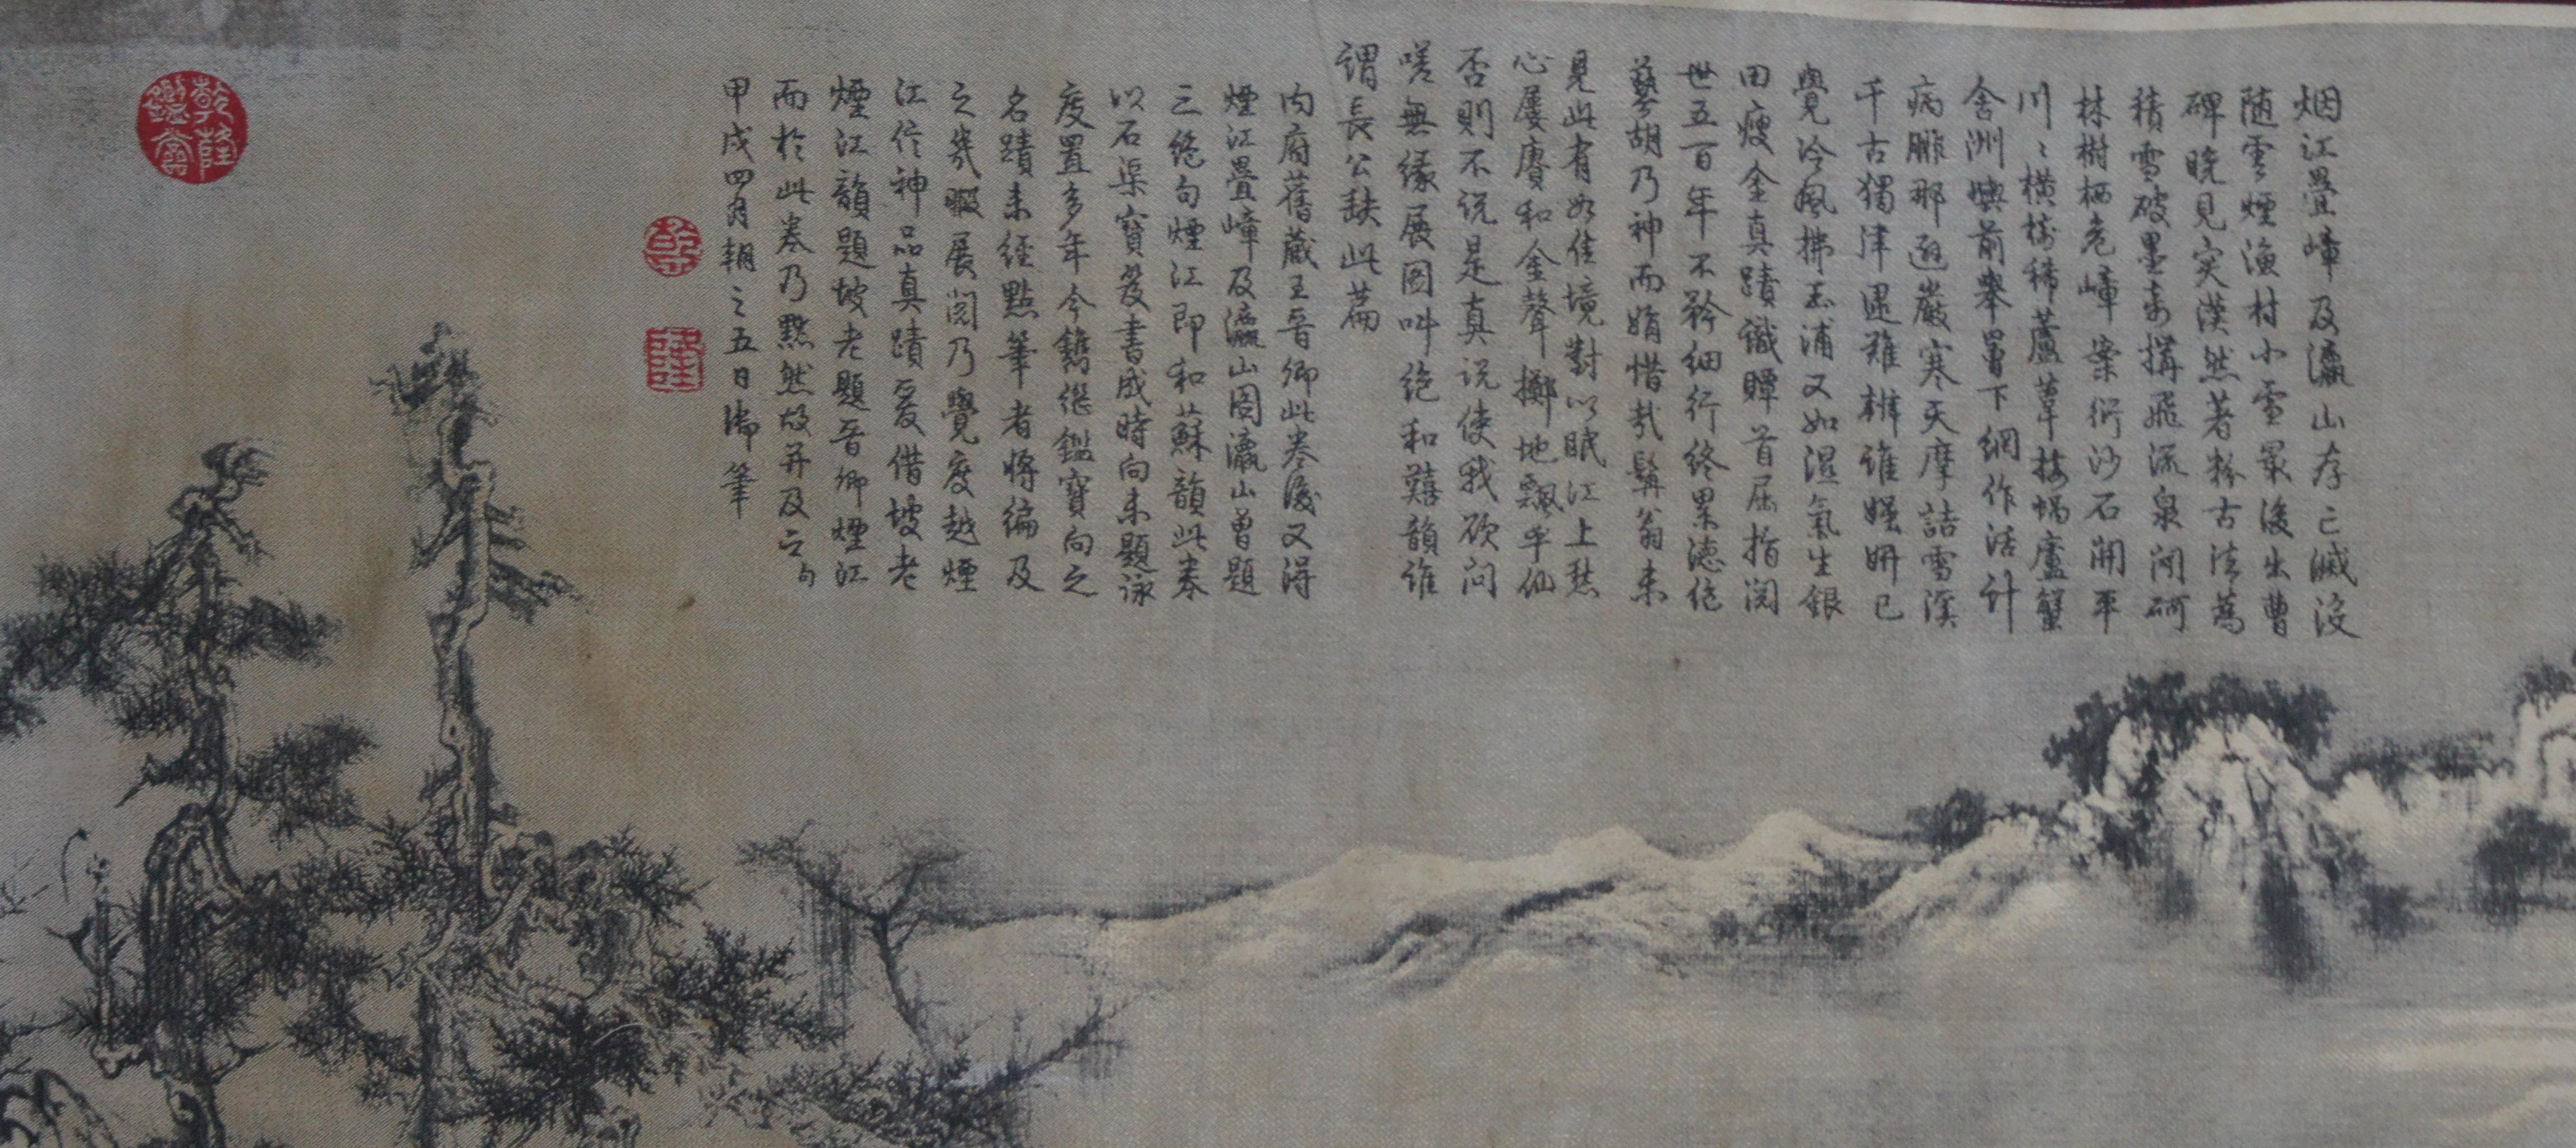 烟江疊嶂及瀛山存亡滅沒
随雲煙漁村小雪最後出曹
碑晚見实漢然著粉古法為
積雪破墨未搆飛流泉閒砢
林樹栖老嶂案衍沙石開平
川〻橫橋稀蘆葦接蝸廬蟹
舍洲嶼前舉罾下網作活計
病腓那避巖寒天摩詰雪溪
千古獨津逮難辨誰媸妍已
覺冷風拂玉浦又如濕氣生銀
田瘦金真蹟識贉首屈指閱
世五百年不矜細行終累德絕
藝胡乃神而娟惜哉髯翁未
見此有如佳境對以眠江上愁
心屢賡和金聲擲地飄乎仙
否則不说是真说使我欲问
嗟無缘展图叫绝和囏韻谁
謂長公缺此篇
内府舊蔵王晋卿此卷後又得
煙江疊嶂及瀛山图瀛山曾題
三絶句煙江即和蘇韻此卷
以石渠寶笈書成時向未題詠
庋置多年今鐫継鑑寶向之
名蹟未經點筆者將徧及
之幾暇展閲乃覺度越煙
江信神品真蹟爰借坡老
煙江韻題坡老題晋卿煙江
而於此卷乃黙然故并及之句
甲戌四月朔之五日御筆
乾
隆
乾隆
鑑賞